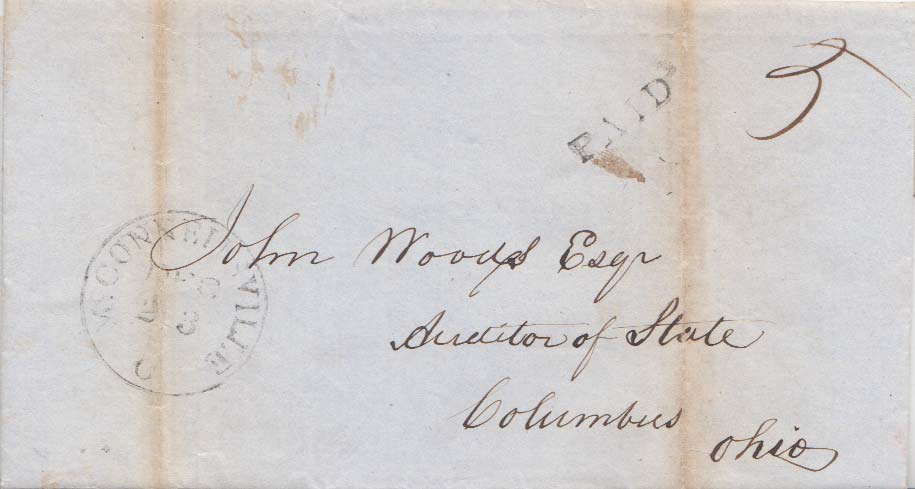 PAID
3
M.CONNELSVILLE
O
John Woods Esqr
Auditor of State
Columbus
Ohio